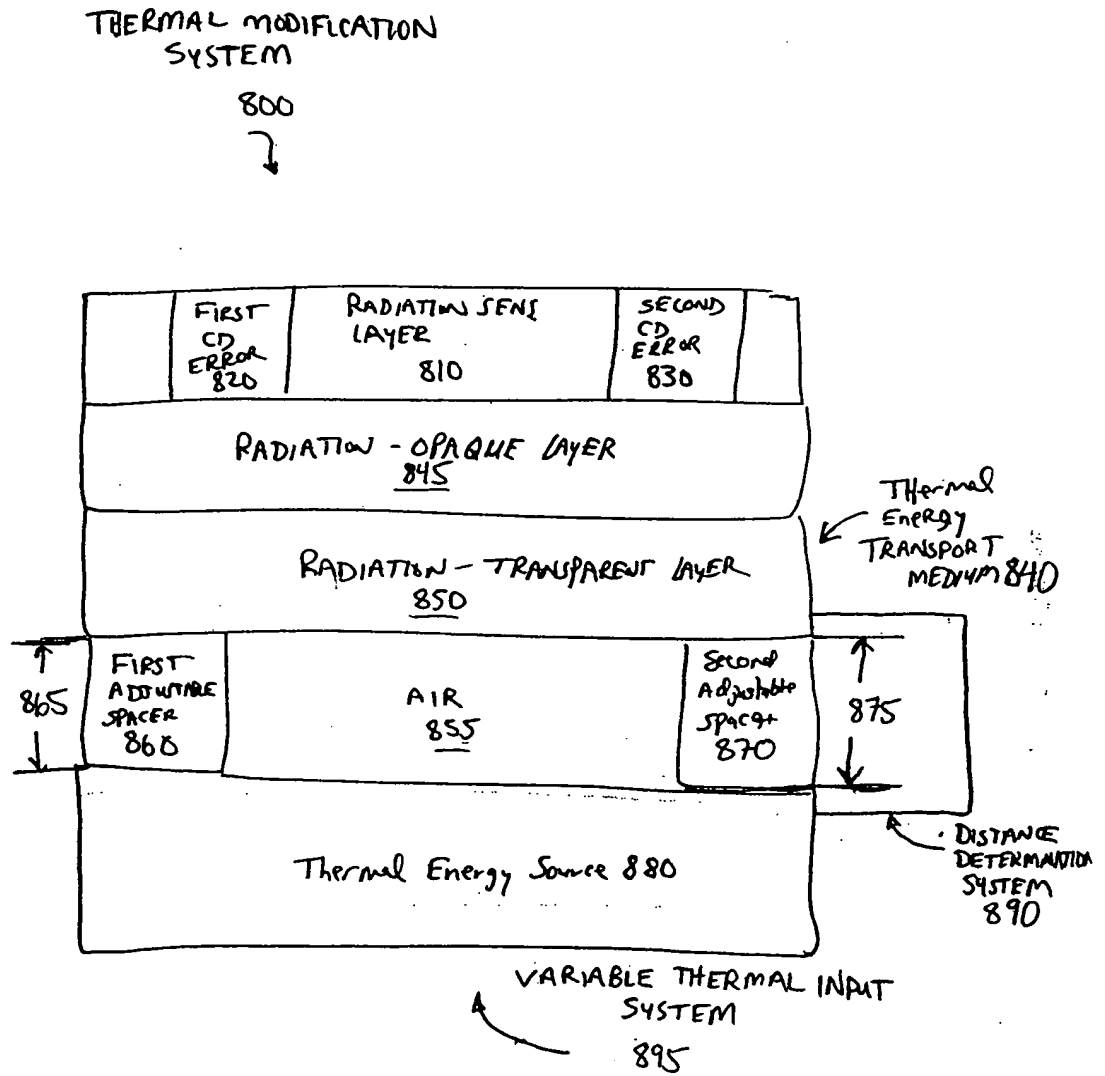 THERMAL MODIFICATION
SYSTEM
800
FIRST
CD
ERROR
820
RADIATION SENS
LAYER
810
SECOND
CD
ERROR
830
RADIATION - OPAQUE LAYER
845
THermal
EnerGY
TRANSPORT
MEDIUM 840
RADIATION - TRANSPARENT LAYER
850
865
FIRST
ADJUSTABLE
SPACER
860
AIR
855
Second
Adjustable
spacer
870
875
Thermal Energy Source 880
DISTANCE
DETERMINATION
SYSTEM
890
VARIABLE THERMAL INPUT
SYSTEM
895